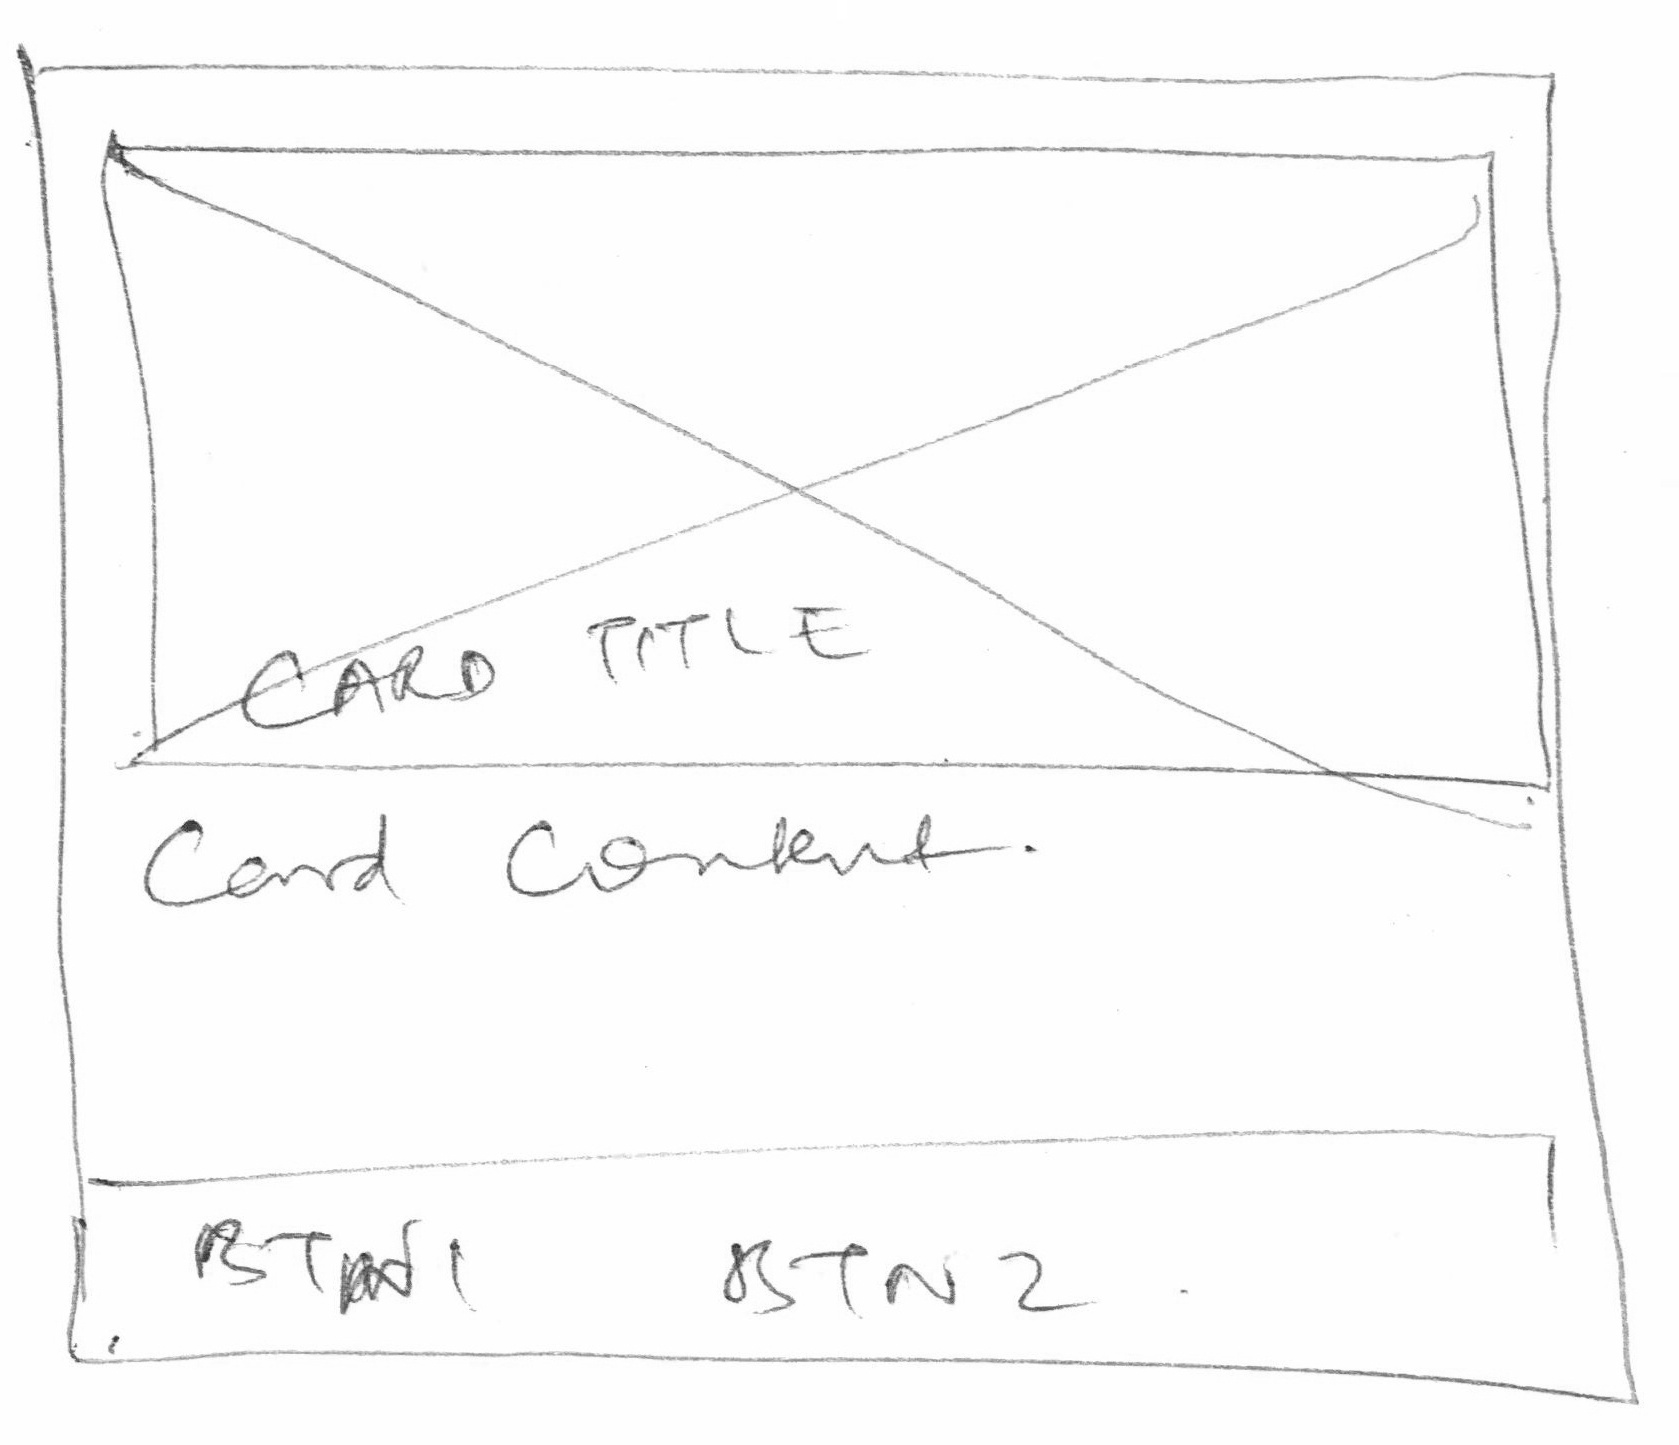 CARD TITLE
Card Content.
BTN1 BTN2.